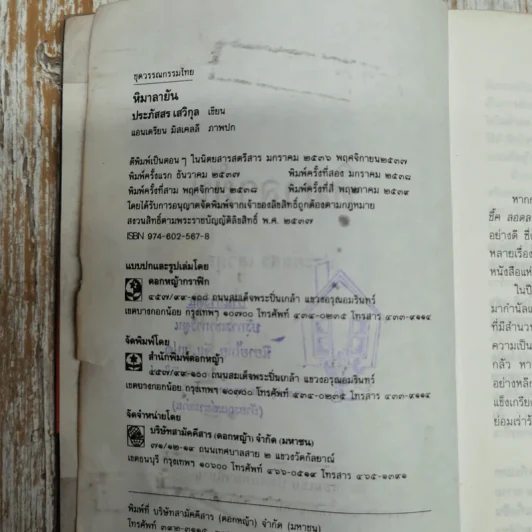 ชุดวรรณกรรมไทย
หิมาลายัน
ประภัสสร เสวิกุล เขียน
แอนเดรียน มิสเคลลี ภาพปก
ตีพิมพ์เป็นตอนๆ ในนิตยสารสตรีสาร มกราคม ๒๕๓๖ พฤศจิกายน๒๕๓๗
พิมพ์ครั้งแรก ธันวาคม ๒๕๓๗ พิมพ์ครั้งที่สอง มกราคม ๒๕๓๘
พิมพ์ครั้งที่สาม พฤศจิกายน ๒๕๓๘ พิมพ์ครั้งที่สี่ พฤษภาคม ๒๕๓๙
โดยได้รับการอนุญาตจัดพิมพ์จากเจ้าของลิขสิทธิ์ถูกต้องตามกฎหมาย
สงวนลิขสิทธิ์ตามพระราชบัญญัติลิขสิทธิ์ พ.ศ. ๒๕๓๗
ISBN 974-602-567-8
แบบปกและรูปเล่มโดย
ดอกหญ้ากราฟิก
๔๕๗/๙๙-๑๐๐ ถนนสมเด็จพระปิ่นเกล้า แขวงอรุณอมรินทร์
เขตบางกอกน้อย กรุงเทพฯ ๑๐๗๐๐ โทรศัพท์ ๔๓๔-๐๒๓๕ โทรสาร ๔๓๓-๙๑๑๔
จัดพิมพ์โดย
สำนักพิมพ์ดอกหญ้า
๔๕๗/๙๙-๑๐๐ ถนนสมเด็จพระปิ่นเกล้า แขวงอรุณอมรินทร์
เขตบางกอกน้อย กรุงเทพฯ ๑๐๗๐๐ โทรศัพท์ ๔๓๔-๐๒๓๕ โทรสาร ๔๓๓-๙๑๑๔
จัดจำหน่ายโดย
บริษัทสามัคคีสาร (ดอกหญ้า) จำกัด (มหาชน)
๗๑/๑๒-๑๙ ถนนเทศบาลสาย ๒ แขวงวัดกัลยาณ์
เขตธนบุรี กรุงเทพฯ ๑๐๖๐๐ โทรศัพท์ ๔๖๖-๐๕๑๙ โทรสาร ๔๖๕-๑๓๙๑
พิมพ์ที่ บริษัทสามัคคีสาร (ดอกหญ้า) จำกัด (มหาชน)
หลายเรื่อง
หนังสือแห่
ในปี
มากำนัลแ
ที่มีสำนวน
ความเป็น
กลัว หา
อย่างหลีก
แข็งเกรีย
ย่อมเร่าร้